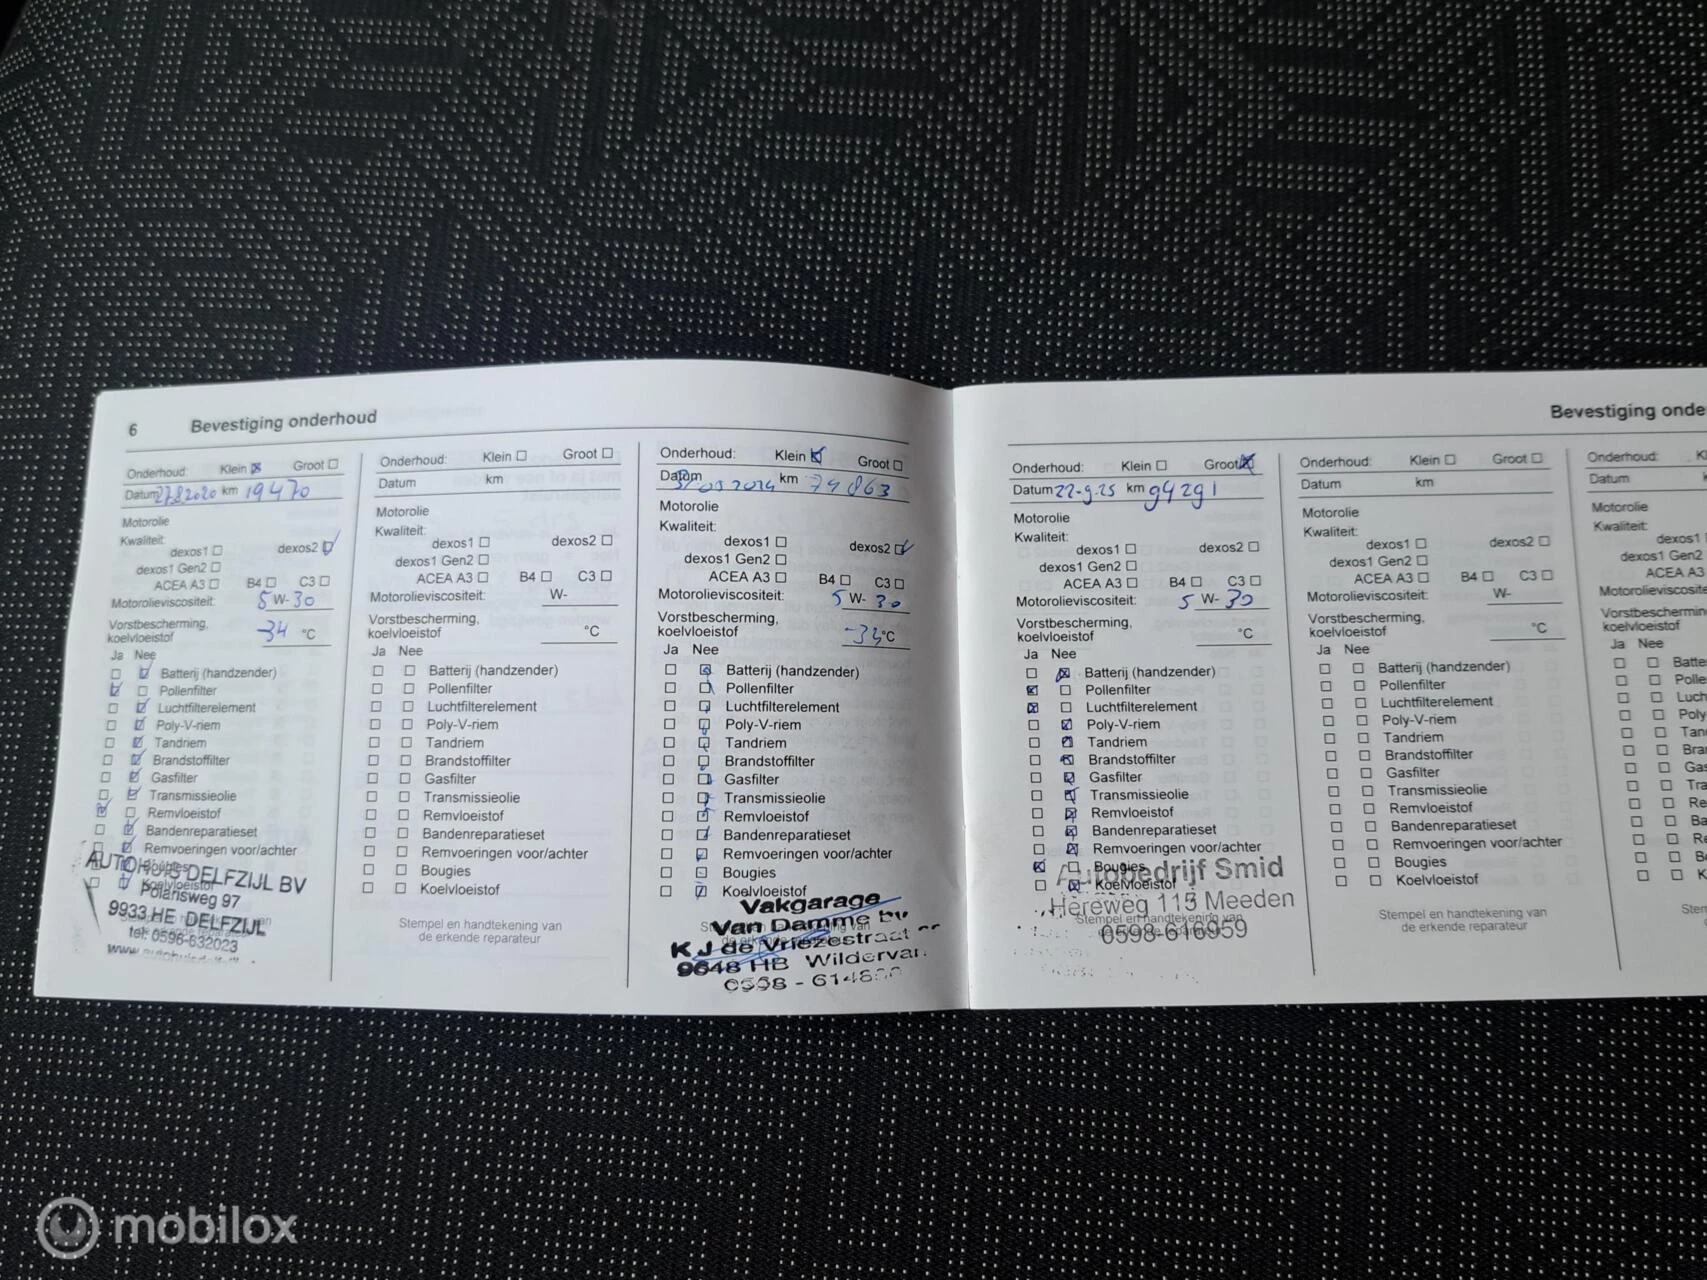 6 Bevestiging onderhoud
Onderhoud: Klein Groot
Datum 27.8.2020 km 19470
Motorolie
Kwaliteit:
dexos1 dexos2
dexos1 Gen2
ACEA A3 B4 C3
Motorolieviscositeit: 5 W- 30
Vorstbescherming,
koelvloeistof -34 °C
Ja Nee
Batterij (handzender)
Pollenfilter
Luchtfilterelement
Poly-V-riem
Tandriem
Brandstoffilter
Gasfilter
Transmissieolie
Remvloeistof
Bandenreparatieset
Remvoeringen voor/achter
Bougies
Koelvloeistof
AUTOHUIS DELFZIJL BV
Polarisweg 97
9933 HE DELFZIJL
tel: 0596-632023
Onderhoud: Klein Groot
Datum km
Motorolie
Kwaliteit:
dexos1 dexos2
dexos1 Gen2
ACEA A3 B4 C3
Motorolieviscositeit: W-
Vorstbescherming,
koelvloeistof °C
Ja Nee
Batterij (handzender)
Pollenfilter
Luchtfilterelement
Poly-V-riem
Tandriem
Brandstoffilter
Gasfilter
Transmissieolie
Remvloeistof
Bandenreparatieset
Remvoeringen voor/achter
Bougies
Koelvloeistof
Stempel en handtekening van
de erkende reparateur
Onderhoud: Klein Groot
Datum km 74863
Motorolie
Kwaliteit:
dexos1 dexos2
dexos1 Gen2
ACEA A3 B4 C3
Motorolieviscositeit: 5 W- 30
Vorstbescherming,
koelvloeistof °C
Ja Nee
Batterij (handzender)
Pollenfilter
Luchtfilterelement
Poly-V-riem
Tandriem
Brandstoffilter
Gasfilter
Transmissieolie
Remvloeistof
Bandenreparatieset
Remvoeringen voor/achter
Bougies
Koelvloeistof
Vakgarage
Van Damme bv
K J de Vriezestraat
9648 HB Wildervan
Bevestiging onde
Onderhoud: Klein Groot
Datum 22-9-25 km 94291
Motorolie
Kwaliteit:
dexos1 dexos2
dexos1 Gen2
ACEA A3 B4 C3
Motorolieviscositeit: 5 W- 30
Vorstbescherming,
koelvloeistof °C
Ja Nee
Batterij (handzender)
Pollenfilter
Luchtfilterelement
Poly-V-riem
Tandriem
Brandstoffilter
Gasfilter
Transmissieolie
Remvloeistof
Bandenreparatieset
Remvoeringen voor/achter
Bougies
Koelvloeistof
Autobedrijf Smid
Hereweg 115 Meeden
Stempel en handtekening van
0598-616959
Onderhoud: Klein Groot
Datum km
Motorolie
Kwaliteit:
dexos1 dexos2
dexos1 Gen2
ACEA A3 B4 C3
Motorolieviscositeit: W-
Vorstbescherming,
koelvloeistof °C
Ja Nee
Batterij (handzender)
Pollenfilter
Luchtfilterelement
Poly-V-riem
Tandriem
Brandstoffilter
Gasfilter
Transmissieolie
Remvloeistof
Bandenreparatieset
Remvoeringen voor/achter
Bougies
Koelvloeistof
Stempel en handtekening van
de erkende reparateur
Onderhoud: Kl
Datum
Motorolie
Kwaliteit:
dexos1
dexos1 Gen2
ACEA A3
Motorolieviscosite
Vorstbescherming,
koelvloeistof
Ja Nee
Batte
Polle
Luch
Poly
Tan
Bra
Gas
Tra
Re
Ba
Re
Bo
K
Stem
mobilox